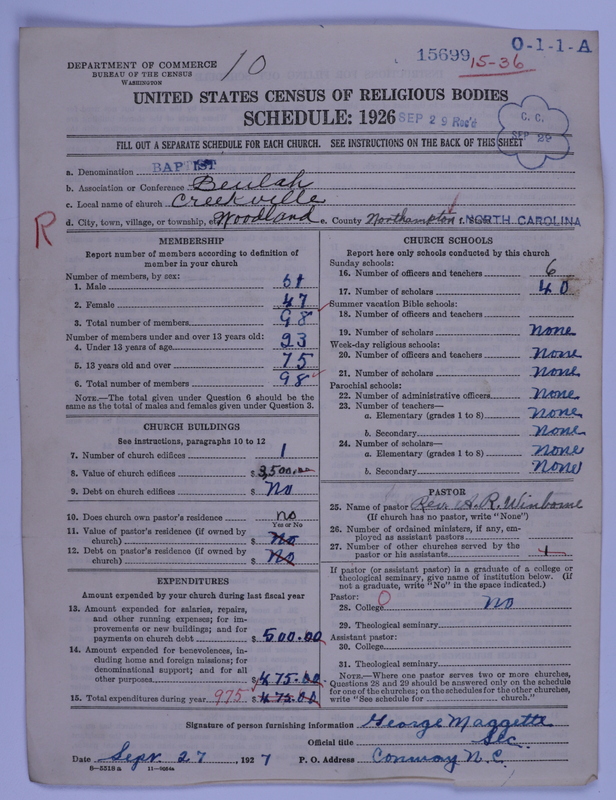 DEPARTMENT OF COMMERCE
BUREAU OF THE CENSUS
WASHINGTON
10
15699
15-36
O-1-1-A
UNITED STATES CENSUS OF RELIGIOUS BODIES
SCHEDULE: 1926
SEP 29 Rec'd
C. C.
SEP 29
FILL OUT A SEPARATE SCHEDULE FOR EACH CHURCH. SEE INSTRUCTIONS ON THE BACK OF THIS SHEET
a. Denomination BAPTIST
b. Association or Conference Beulah
c. Local name of church Creeksville
d. City, town, village, or township, etc. Woodland e. County Northampton f. NORTH CAROLINA
R
MEMBERSHIP
Report number of members according to definition of
member in your church
Number of members, by sex:
1. Male 51
2. Female 47
3. Total number of members 98
Number of members under and over 13 years old:
4. Under 13 years of age 23
5. 13 years old and over 75
6. Total number of members 98
NOTE.—The total given under Question 6 should be the
same as the total of males and females given under Question 3.
CHURCH BUILDINGS
See instructions, paragraphs 10 to 12
7. Number of church edifices 1
8. Value of church edifices $3,500.00
9. Debt on church edifices $ No
10. Does church own pastor's residence no
Yes or No
11. Value of pastor's residence (if owned by
church) $ No
12. Debt on pastor's residence (if owned by
church) $ No
EXPENDITURES
Amount expended by your church during last fiscal year
13. Amount expended for salaries, repairs,
and other running expenses; for im-
provements or new buildings; and for
payments on church debt $ 500.00
14. Amount expended for benevolences, in-
cluding home and foreign missions; for
denominational support; and for all
other purposes $ 475.00
15. Total expenditures during year 975 $ 475.00
CHURCH SCHOOLS
Report here only schools conducted by this church
Sunday schools:
16. Number of officers and teachers 6
17. Number of scholars 40
Summer vacation Bible schools:
18. Number of officers and teachers
19. Number of scholars None
Week-day religious schools:
20. Number of officers and teachers None
21. Number of scholars None
Parochial schools:
22. Number of administrative officers None
23. Number of teachers—
a. Elementary (grades 1 to 8) None
b. Secondary None
24. Number of scholars—
a. Elementary (grades 1 to 8) None
b. Secondary None
PASTOR
25. Name of pastor Rev. H. R. Winborne
(If church has no pastor, write "None")
26. Number of ordained ministers, if any, em-
ployed as assistant pastors
27. Number of other churches served by the
pastor or his assistants 1
If pastor (or assistant pastor) is a graduate of a college or
theological seminary, give name of institution below. (If
not a graduate, write "No" in the space indicated.)
Pastor: O
28. College No
29. Theological seminary
Assistant pastor:
30. College
31. Theological seminary
NOTE.—Where one pastor serves two or more churches,
Questions 28 and 29 should be answered only on the schedule
for one of the churches; on the schedules for the other churches,
write "See schedule for church."
Signature of person furnishing information George Maggette
Official title Sec.
Date Sept 27, 1927 P. O. Address Conway N. C.
8—5518a